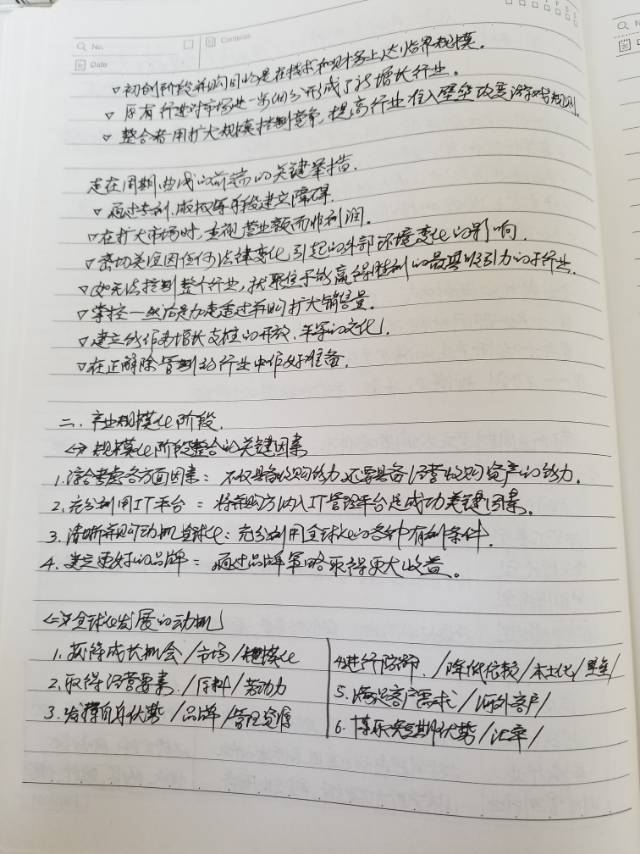 No.
Date
Contents
▽初创阶段并购目的是在技术和财务上达临界规模。
▽原有行业对市场业一当的分形成了新增长行业。
▽整合者用扩大规模控制竞争,提高行业准入壁垒改变游戏规则。
走在周期曲线的前端的关键举措。
▽通过专利、版权等手段建立障碍。
▽在扩大市场时,重视营业额而非利润。
▽密切关注因任何法律变化引起的外部环境变化的影响。
▽如无法控制整个行业,就聚位于能赢得胜利的最具吸引力的子行业。
▽掌控一然后是通过并购扩大销售量。
▽建立作为增长支柱的开放、平等的文化。
▽在正解除管制的行业中作好准备。
二、产业规模化阶段。
<一>规模化阶段整合的关键因素
1.综合考虑各方面因素:不仅具备收购能力,还要具备经营收购资产的能力。
2.充分利用IT平台:将并购方纳入IT管理平台是成功关键因素。
3.清晰并购动机全球化:充分利用全球化的各种有利条件。
4.建立更好的品牌:通过品牌策略取得更大收益。
<二>全球化发展的动机
1.获得成长机会/市场/规模化
2.取得经营要素/原料/劳动力
3.发挥自身优势/品牌/管理资源
4.进行防御./降低依赖/本土化/壁垒/
5.满足客户需求/海外客户/
6.博取短期优势/汇率/